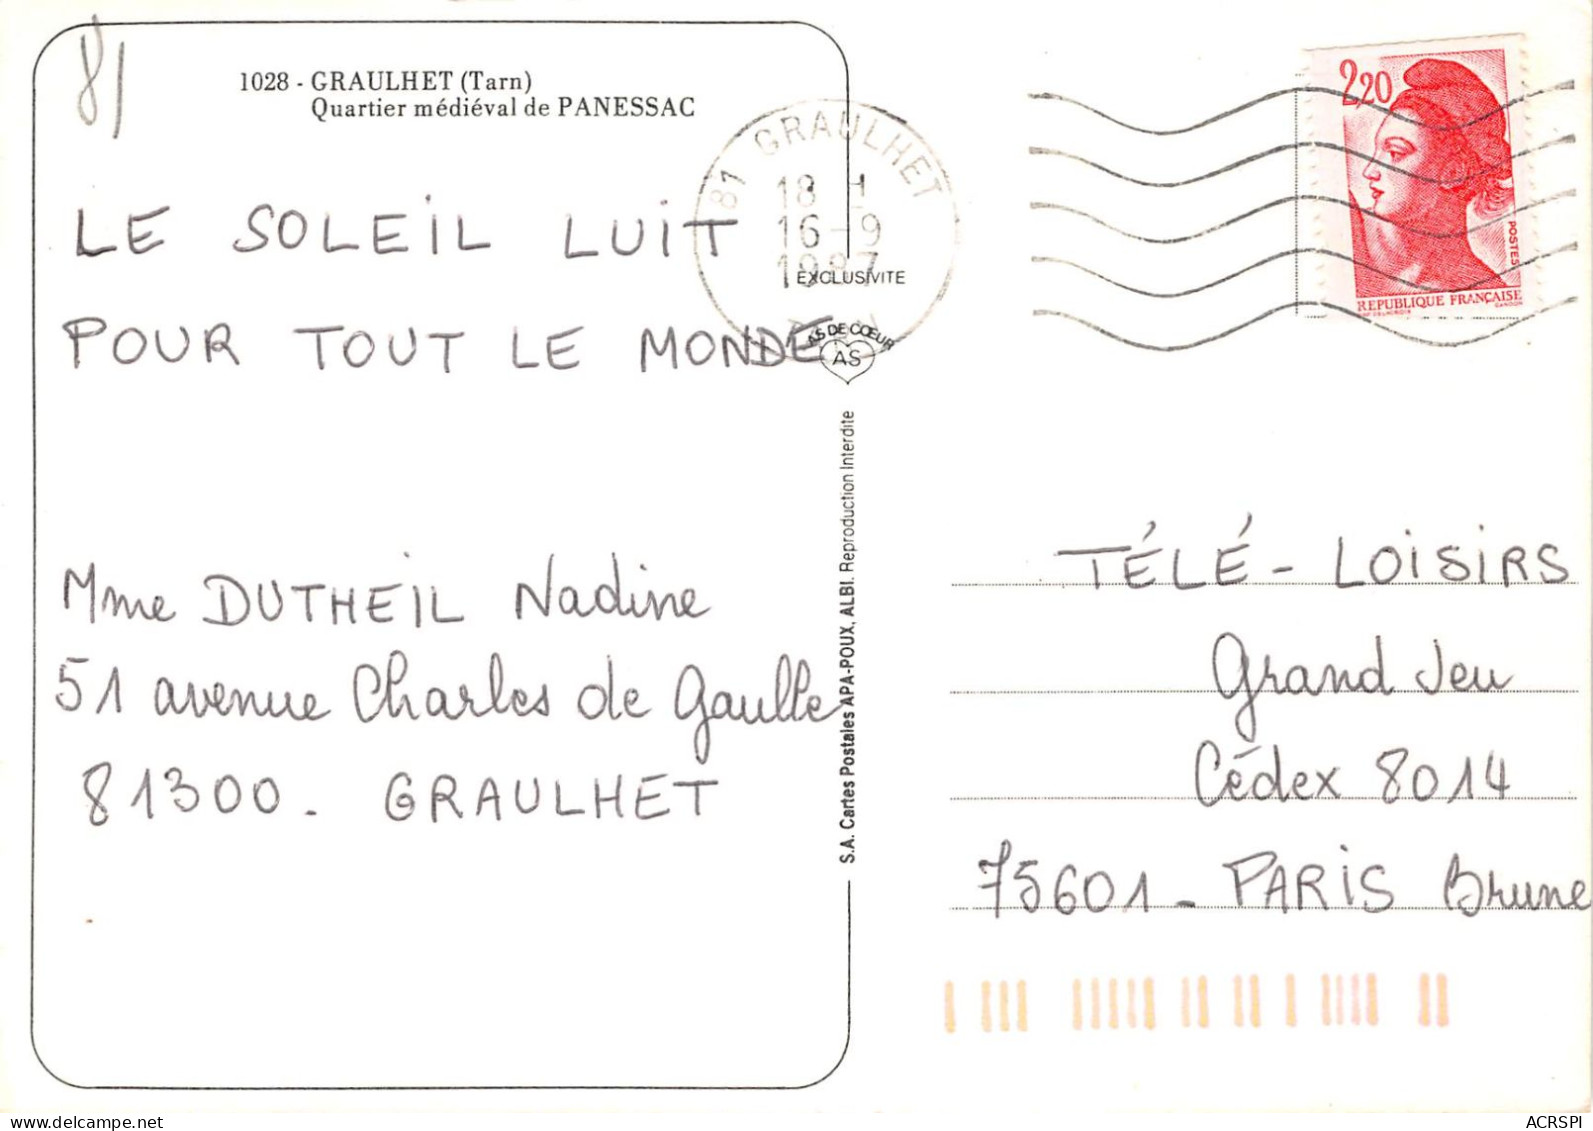 81
1028 - GRAULHET (Tarn)
Quartier médiéval de PANESSAC
LE SOLEIL LUIT
POUR TOUT LE MONDE
Mme DUTHEIL Nadine
51 avenue Charles de Gaulle
81300. GRAULHET
81 GRAULHET
18 H
16-9
1987
EXCLUSIVITE
AS DE CŒUR
AS
S.A. Cartes Postales APA-POUX, ALBI. Reproduction Interdite
2,20
POSTES
REPUBLIQUE FRANÇAISE
TÉLÉ - LOISIRS
Grand Jeu
Cédex 8014
75601 - PARIS Brune
delcampe.net
ACRSPI